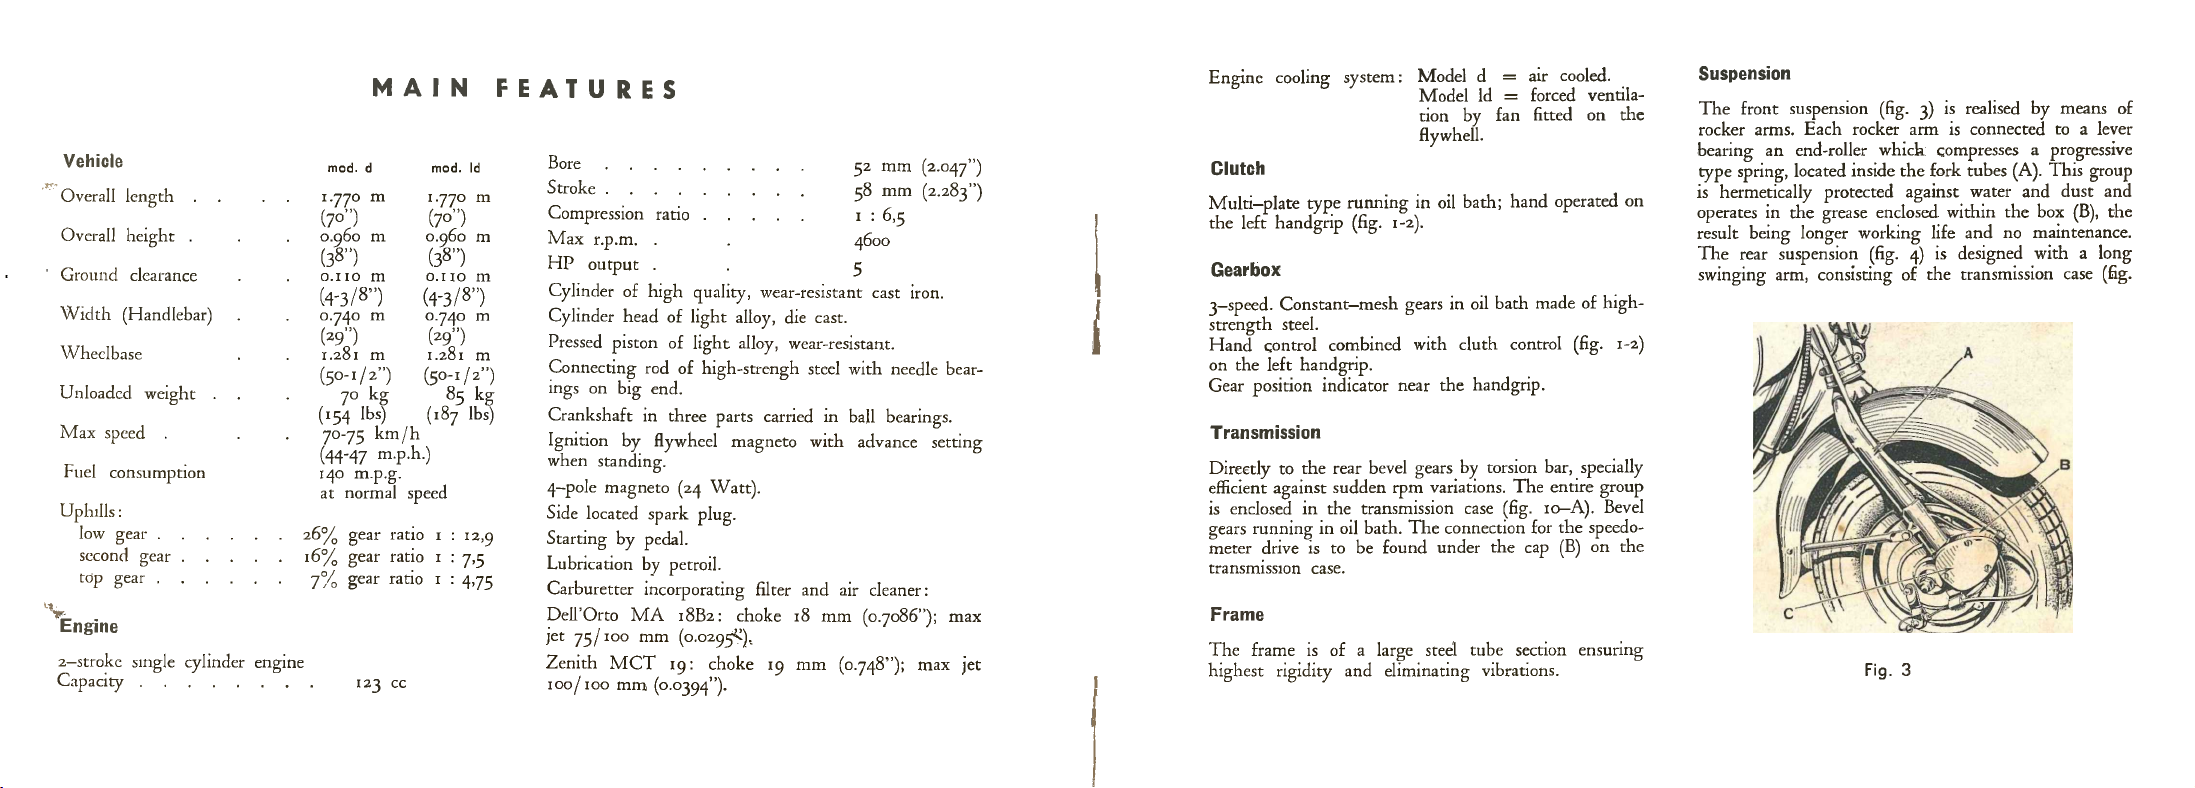 MAIN FEATURES
Vehicle mod. d mod. ld
Overall length . . . . 1.770 m 1.770 m
(70”) (70”)
Overall height . . . 0.960 m 0.960 m
(38”) (38”)
Ground clearance . . 0.110 m 0.110 m
(4-3/8”) (4-3/8”)
Width (Handlebar) . . 0.740 m 0.740 m
(29”) (29”)
Wheelbase . . 1.281 m 1.281 m
(50-1/2”) (50-1/2”)
Unloaded weight . . . 70 kg 85 kg
(154 lbs) (187 lbs)
Max speed . . . 70-75 km/h
(44-47 m.p.h.)
Fuel consumption 140 m.p.g.
at normal speed
Uphills:
low gear . . . . . . 26% gear ratio 1 : 12,9
second gear . . . . . 16% gear ratio 1 : 7,5
top gear . . . . . . 7% gear ratio 1 : 4,75
Engine
2–stroke single cylinder engine
Capacity . . . . . . . . 123 cc
Bore . . . . . . . . . 52 mm (2.047”)
Stroke . . . . . . . . . 58 mm (2.283”)
Compression ratio . . . . . 1 : 6,5
Max r.p.m. . . 4600
HP output . . 5
Cylinder of high quality, wear-resistant cast iron.
Cylinder head of light alloy, die cast.
Pressed piston of light alloy, wear-resistant.
Connecting rod of high-strengh steel with needle bear-
ings on big end.
Crankshaft in three parts carried in ball bearings.
Ignition by flywheel magneto with advance setting
when standing.
4–pole magneto (24 Watt).
Side located spark plug.
Starting by pedal.
Lubrication by petroil.
Carburetter incorporating filter and air cleaner:
Dell'Orto MA 18B2: choke 18 mm (0.7086”); max
jet 75/100 mm (0.0295”).
Zenith MCT 19: choke 19 mm (0.748”); max jet
100/100 mm (0.0394”).
Engine cooling system: Model d = air cooled.
Model ld = forced ventila-
tion by fan fitted on the
flywhell.
Clutch
Multi–plate type running in oil bath; hand operated on
the left handgrip (fig. 1-2).
Gearbox
3–speed. Constant–mesh gears in oil bath made of high-
strength steel.
Hand control combined with cluth control (fig. 1-2)
on the left handgrip.
Gear position indicator near the handgrip.
Transmission
Directly to the rear bevel gears by torsion bar, specially
efficient against sudden rpm variations. The entire group
is enclosed in the transmission case (fig. 10–A). Bevel
gears running in oil bath. The connection for the speedo-
meter drive is to be found under the cap (B) on the
transmission case.
Frame
The frame is of a large steel tube section ensuring
highest rigidity and eliminating vibrations.
Suspension
The front suspension (fig. 3) is realised by means of
rocker arms. Each rocker arm is connected to a lever
bearing an end-roller which compresses a progressive
type spring, located inside the fork tubes (A). This group
is hermetically protected against water and dust and
operates in the grease enclosed within the box (B), the
result being longer working life and no maintenance.
The rear suspension (fig. 4) is designed with a long
swinging arm, consisting of the transmission case (fig.
A
B
C
Fig. 3